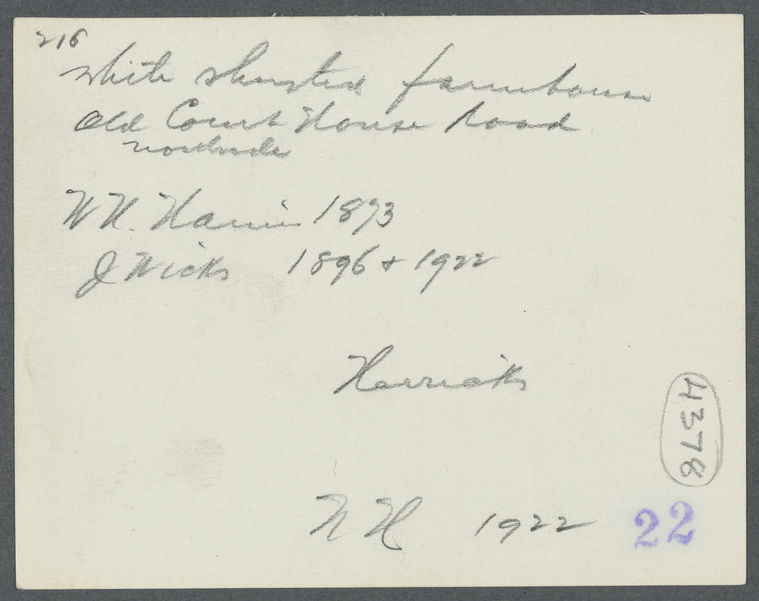 216
White shuttered farmhouse
Old Court House Road
northside
W H. Harris 1873
J Wicks 1896 + 1922
Herricks
4378
N H 1922 22